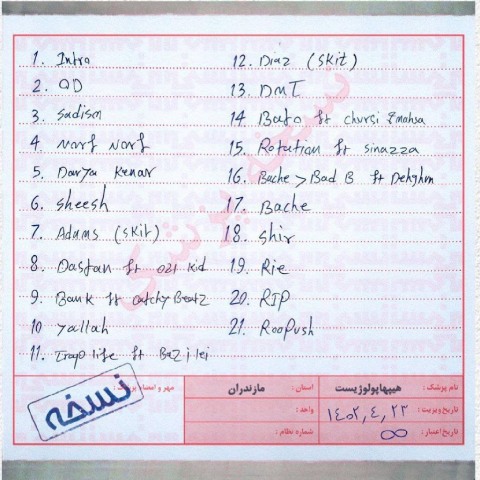 1. Intro
2. OD
3. Sadism
4. Norf Norf
5. Darya Kenar
6. Sheesh
7. Adams (Skit)
8. Dastan ft 021 Kid
9. Bank ft CatchyBeatz
10 Yallah
11. Trap life ft Bazilei
12. Diaz (Skit)
13. DMT
14. Bato ft Chvrsi & mahsa
15. Rotation ft Sinazza
16. Bache > Bad B ft Dehghn
17. Bache
18. Shir
19. Rie
20. RIP
21. Roopush
نسخه پزشکی
نام پزشک : هیپهاپولوژیست
استان : مازندران
مهر و امضاء پزشک :
تاریخ ویزیت : ۱۴۰۲,۴,۲۳
واحد :
تاریخ اعتبار : ∞
شماره نظام :
نسخه